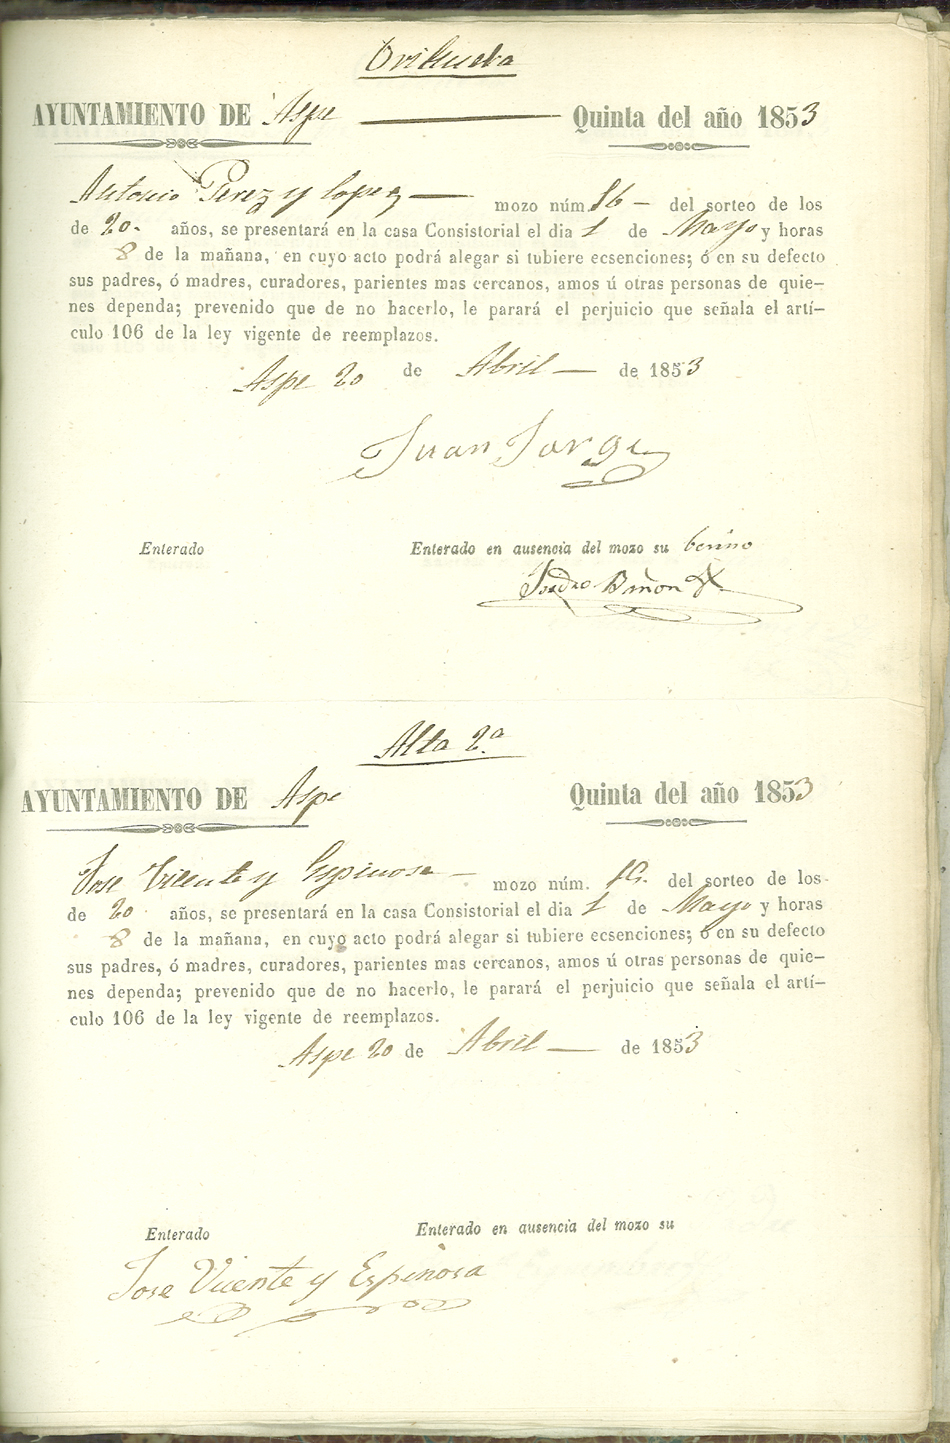 Orihuela
AYUNTAMIENTO DE Aspe Quinta del año 1853
Antonio Perez y Lopez — mozo núm 16 — del sorteo de los
de 20. años, se presentará en la casa Consistorial el dia 1 de Mayo y horas
8 de la mañana, en cuyo acto podrá alegar si tubiere ecsenciones; ó en su defecto
sus padres, ó madres, curadores, parientes mas cercanos, amos ú otras personas de quie-
nes dependa; prevenido que de no hacerlo, le parará el perjuicio que señala el artí-
culo 106 de la ley vigente de reemplazos.
Aspe 20 de Abril — de 1853
Juan Jorge
Enterado Enterado en ausencia del mozo su
Isidro
Alta 2.ª
AYUNTAMIENTO DE Aspe Quinta del año 1853
Jose Vicente y Espinosa — mozo núm. del sorteo de los
de 20 años, se presentará en la casa Consistorial el dia 1 de Mayo y horas
8 de la mañana, en cuyo acto podrá alegar si tubiere ecsenciones; ó en su defecto
sus padres, ó madres, curadores, parientes mas cercanos, amos ú otras personas de quie-
nes dependa; prevenido que de no hacerlo, le parará el perjuicio que señala el artí-
culo 106 de la ley vigente de reemplazos.
Aspe 20 de Abril — de 1853
Enterado Enterado en ausencia del mozo su
Jose Vicente y Espinosa